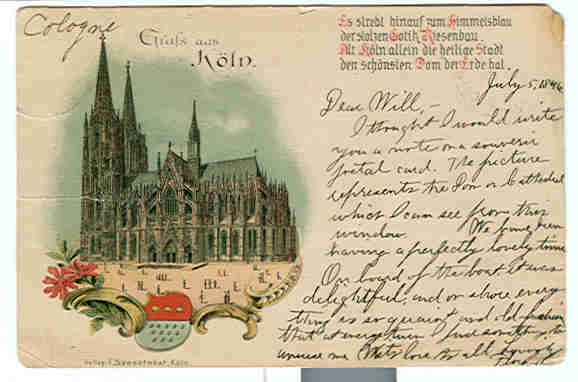 Cologne
Gruß aus
Köln.
Es strebt hinauf zum Himmelsblau
der stolzen Gotik Riesenbau.
Alt Köln allein die heilige Stadt
den schönsten Dom der Erde hat.
July 5, 1896
Dear Will, –
I thought I would write
you a note on a souvenir
postal card. The picture
represents the Dom or Cathedral
which I can see from this
window. We have been
having a perfectly lovely time
On board of the boat it was
delightful, and on shore every
thing is so quaint and old
that at every turn I find something to
amuse me
love to all
Verlag
Köln